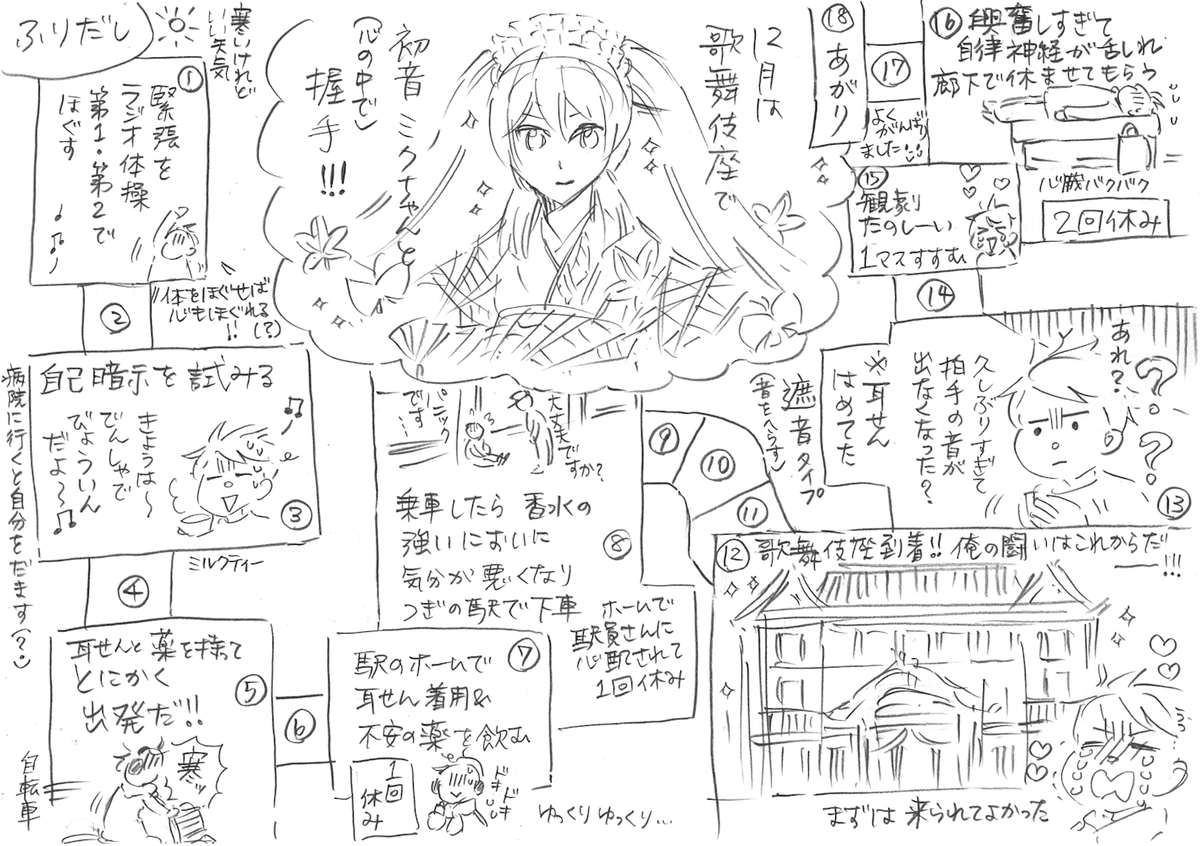 ふりだし
寒いけれど
いい天気
①
緊張を
ラジオ体操
第1・第2で
ほぐす
②
体をほぐせば
心もほぐれる
!! (?)
自己暗示を試みる
きょうは〜
でんしゃで
びょういん
だよ〜〜
③
ミルクティー
病院に行くと自分をだます(?)
④
耳せんと薬を持って
とにかく
出発だ!!
⑤
寒ッ
自転車
⑥
⑦
駅のホームで
耳せん着用&
不安の薬を飲む
1回
休み
ドキドキ
ゆっくりゆっくり…
大丈夫ですか?
パニック
です…
乗車したら香水の
強いにおいに
気分が悪くなり
つぎの駅で下車
⑧
ホームで
駅員さんに
心配されて
1回休み
⑨
⑩
⑪
⑫ 歌舞伎座到着!! 俺の闘いはこれからだ
ー!!!
まずは来られてよかった
あれ?
???
久しぶりすぎて
拍手の音が
出なくなった?
⑬
※耳せん
はめてた
遮音タイプ
(音をへらす)
⑭
⑮
観劇
たのしーい
1マスすすむ
⑯ 興奮しすぎて
自律神経が乱れ
廊下で休ませてもらう
心臓バクバク
2回休み
⑰
よく
がんばり
ました
⑱
あがり
12月は
歌舞伎座で
初音ミクちゃんと
(心の中で)
握手
!!!